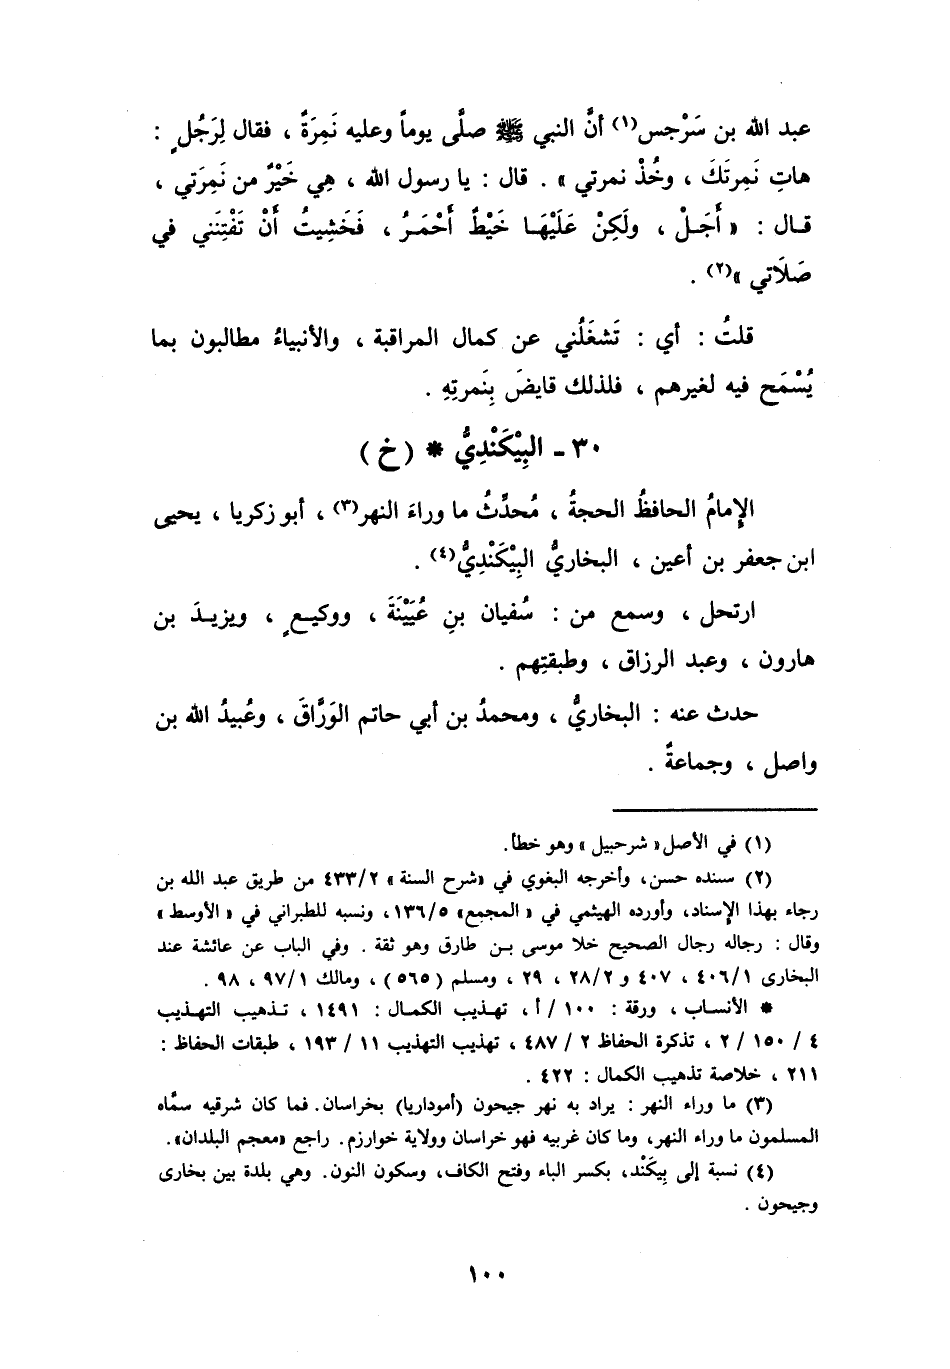 عبد الله بن سَرْجس(١) أنَّ النبي ﷺ صلَّى يوماً وعليه نَمِرَةٌ ، فقال لِرَجُلٍ :
هاتِ نَمِرتَكَ ، وخُذْ نمرتي » . قال : يا رسول الله ، هِي خَيْرٌ من نَمِرَتي ،
قال : « أَجَلْ ، ولَكِنْ عَلَيْهَا خَيْطٌ أَحْمَرُ ، فَخَشِيتُ أَنْ تَفْتِنَني في
صَلَاتي »(٢) .
قلتُ : أي : تَشغَلُني عن كمال المراقبة ، والأنبياءُ مطالبون بما
يُسْمَح فيه لغيرهم ، فلذلك قايضَ بِنَمرتِهِ .
٣٠ - البِيْكَنْدِيُّ * ( خ )
الإِمامُ الحافظُ الحجةُ ، مُحدِّثُ ما وراءَ النهر(٣) ، أبو زكريا ، يحيى
ابن جعفر بن أعين ، البخاريُّ البِيْكَنْدِيُّ(٤) .
ارتحل ، وسمع من : سُفيان بنِ عُيَيْنَةَ ، ووكيعٍ ، ويزيدَ بن
هارون ، وعبد الرزاق ، وطبقتِهم .
حدث عنه : البخاريُّ ، ومحمدُ بن أبي حاتم الوَرَّاقَ ، وعُبيدُ الله بن
واصل ، وجماعةٌ .
(١) في الأصل « شرحبيل » وهو خطأ.
(٢) سنده حسن، وأخرجه البغوي في «شرح السنة » ٤٣٣/٢ من طريق عبد الله بن
رجاء بهذا الإسناد، وأورده الهيثمي في « المجمع» ١٣٦/٥، ونسبه للطبراني في « الأوسط »
وقال : رجاله رجال الصحيح خلا موسى بن طارق وهو ثقة . وفي الباب عن عائشة عند
البخارى ٤٠٦/١ ، ٤٠٧ و ٢٨/٢ ، ٢٩ ، ومسلم ( ٥٦٥ ) ، ومالك ٩٧/١ ، ٩٨ .
* الأنساب ، ورقة : ١٠٠ / أ ، تهذيب الكمال : ١٤٩١ ، تذهيب التهذيب
٤ / ١٥٠ / ٢ ، تذكرة الحفاظ ٢ / ٤٨٧ ، تهذيب التهذيب ١١ / ١٩٣ ، طبقات الحفاظ :
٢١١ ، خلاصة تذهيب الكمال : ٤٢٢ .
(٣) ما وراء النهر : يراد به نهر جيحون (أموداريا) بخراسان. فما كان شرقيه سمَّاه
المسلمون ما وراء النهر، وما كان غربيه فهو خراسان وولاية خوارزم. راجع «معجم البلدان».
(٤) نسبة إلى بِيكَنْد، بكسر الباء وفتح الكاف، وسكون النون. وهي بلدة بين بخارى
وجيحون .
١٠٠